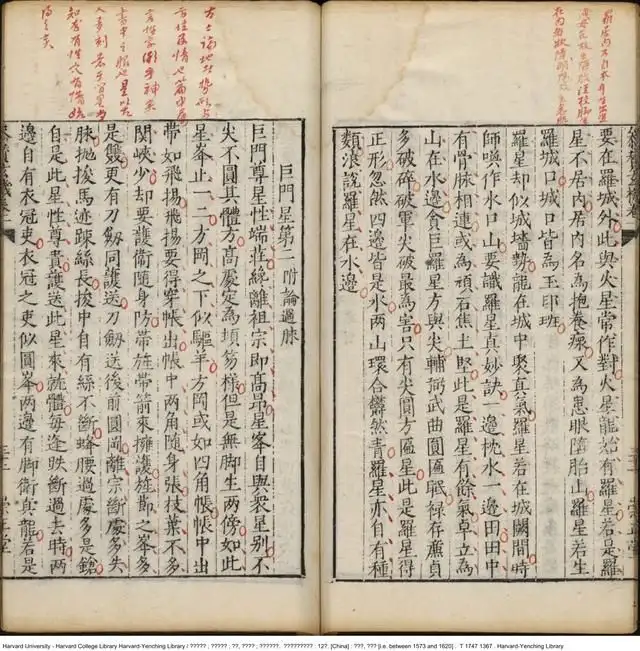 要在羅城外此與火星常作對火星龍始有羅星若是羅
星不居內居內名為抱養瘝又為患眼墮胎山羅星若生
羅城口城口皆為玉印班
羅星却似城墻勢龍在城中聚真氣羅星若在城闕間時
師喚作水口山要識羅星真妙訣一邊枕水一邊田田中
有骨脉相連或為頑石焦土堅此是羅星有餘氣卓立為
山在水邊貪巨羅星方與尖輔弼武曲圓匾眠禄存廉貞
多破碎破軍尖破最為害只有尖圓方匾星此是羅星得
正形忽然四邊皆是水两山環合欝然青羅星亦自有種
類浪說羅星在水邊
巨門星第二附論過脉
巨門尊星性端莊纔離祖宗即高昂星峯自與衆星別不
尖不圓其體方高處定為頓笏樣但是無脚生兩傍如此
星峯止一二方岡之下似驅羊方岡或如四角帳帳中出
帶如飛揚飛揚要得穿帳出帳中两角隨身張枝葉不多
関峽少却要護衛隨身防帶旌帶節來擁護旌節之峯多
是雙更有刀劔同護送刀劔送後前圓岡離宗斷處多失
脉抛梭馬迹踈絲長梭中自有絲不斷蜂腰過處多是鎗
自是此星性尊貴護送此星來就體每逢跌斷過去時两
邊自有衣冠吏衣冠之吏似圓峯两邊有脚衛真龍若是
Harvard University - Harvard College Library Harvard-Yenching Library / ????? ; ????? ; ??, ???? ; ??????. ????????? : 12?. [China] : ???, ??? [i.e. between 1573 and 1620] . T 1747 1367 . Harvard-Yenching Library